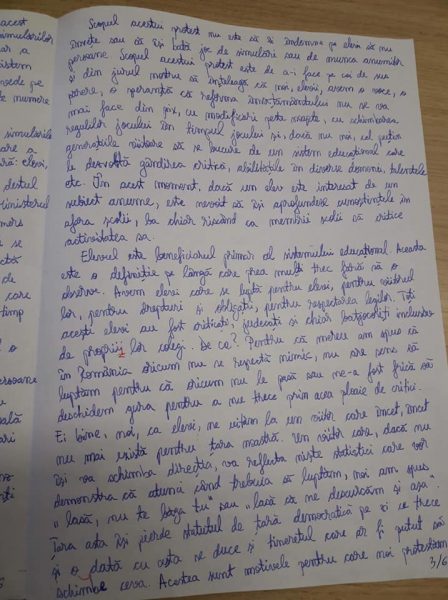 acest
simulărilor
ar a
sistem
sede pe
te numere
simulările
care a
ară: elevi,
destul
Ministerul
mers
a se
tată
de
care
timp
! o
persoane
a
oală
ari
ști
Scopul acestui protest nu este să îi îndemne pe elevi să nu
învețe sau să își bată joc de simulări sau de munca anumitor
persoane. Scopul acestui protest este de a-i face pe cei de sus
și din jurul nostru să înțeleagă că noi, elevii, avem o voce, o
putere, o speranță că reforma învățământului nu se va
mai face din pix, cu modificări peste noapte, cu schimbarea
regulilor jocului în timpul jocului și, dacă nu noi, cel puțin
generațiile viitoare să se bucure de un sistem educațional care
le dezvoltă gândirea critică, abilitățile în diverse domenii, talentele
etc. În acest moment, dacă un elev este interesat de un
subiect anume, este nevoit să își aprofundeze cunoștințele în
afara școlii, ba chiar riscând ca membrii școlii să critice
activitatea sa.
Elevul este beneficiarul primar al sistemului educațional. Aceasta
este o definiție pe lângă care prea mulți trec fără să o
observe. Avem elevi care se luptă pentru elevi, pentru viitorul
lor, pentru drepturi și obligații, pentru respectarea legilor. Toți
acești elevi au fost criticați, judecați și chiar batjocoriți inclusiv
de propriii lor colegi. De ce? Pentru că mereu am spus că
în România oricum nu se respectă nimic, nu are sens să
luptăm pentru că oricum nu le pasă sau ne-a fost frică să
deschidem gura pentru a nu trece prin acea ploaie de critici.
Ei bine, noi, ca elevi, ne uităm la un viitor care încet, încet
nu mai există pentru țara noastră. Un viitor care, dacă nu
își va schimba direcția, va reflecta niște statistici care vor
demonstra că atunci când trebuia să luptăm, noi am spus
„lasă, nu te băga tu" sau „lasă că ne descurcăm și așa".
Țara asta își pierde statutul de țară democratică pe zi ce trece
și o dată cu asta se duce și tineretul care ar fi putut să
schimbe ceva. Acestea sunt motivele pentru care noi protestăm
3/6